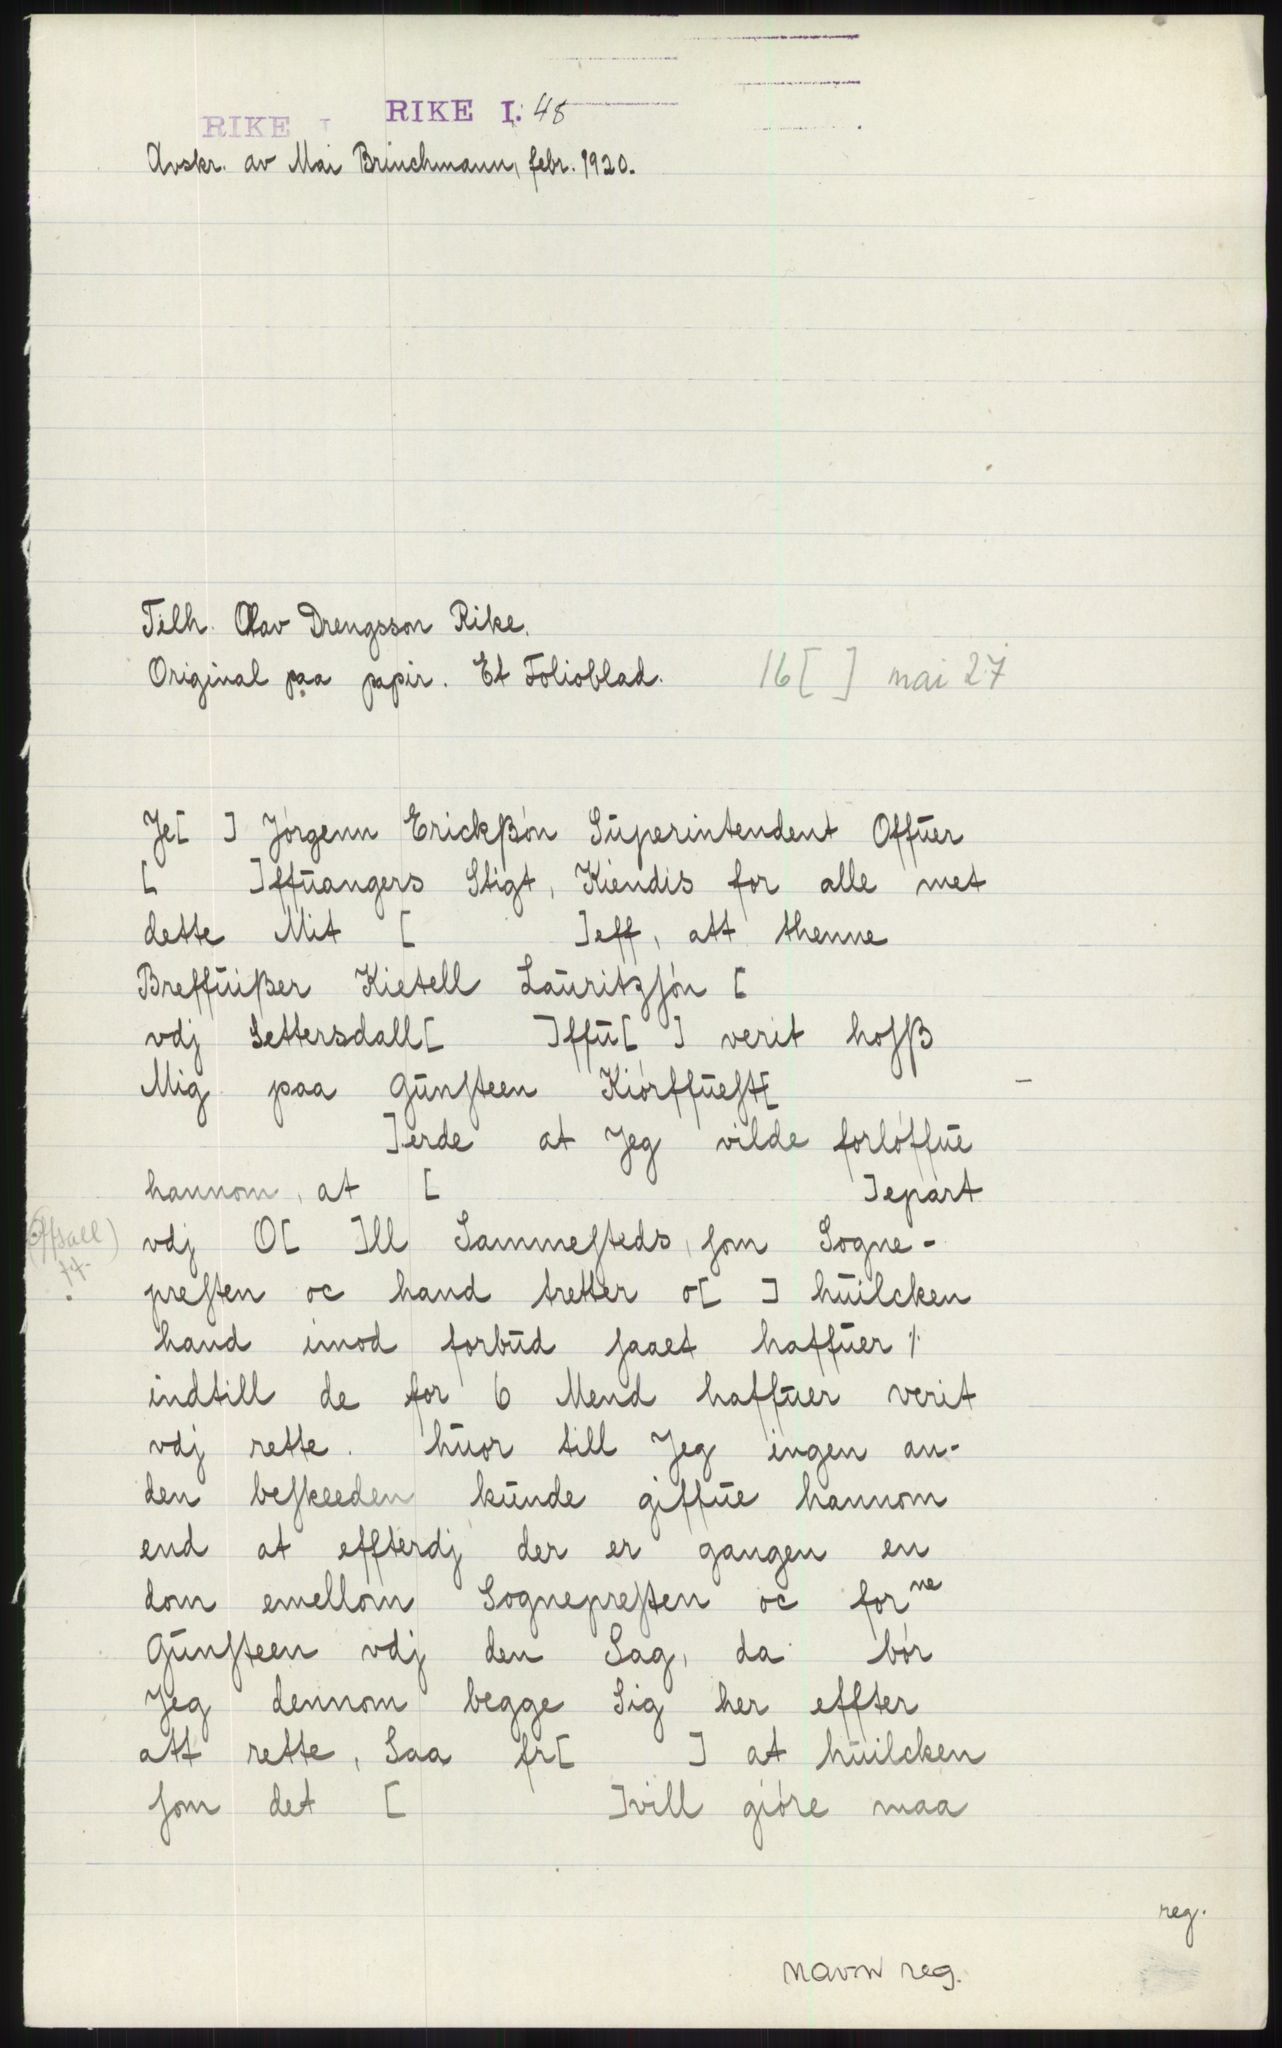 RIKE I
RIKE I. 48
Avskr. av Mai Brinchmann, febr. 1920.
Tilh. Olav Drengsson Rike.
Original paa papir. Et Folioblad. 16[ ] mai 27
Je[ ] Jórgenn Erickßón Superintendent Offuer
[ ]ffuangers Stigt, Kiendis for alle met
dette Mit [ ]eff, att thenne
Breffuißer Kietell Lauritzſón [
vdj Settersdall[ ]ffu[ ] verit hoſß
Mig paa Gunſteen Kiórffueſt[
]erde at Jeg vilde forlóffue
hannom, at [ ]epart
vdj O[ ]ll Sammeſteds, ſom Sogne-
preſten oc hand tretter o[ ] huilcken
hand imod forbud ſaaet haffuer /.
indtill de for 6 Mend haffuer verit
vdj rette. huor till Jeg ingen an-
den beſkeeden kunde giffue hannom
end at effterdj der er gangen en
dom emellom Sognepreſten oc for ne
Gunſteen vdj den Sag, da bór
Jeg dennom begge Sig her effter
att rette, Saa fr[ ] at huilcken
ſom det [ ]vill gióre maa
reg.
navn reg.